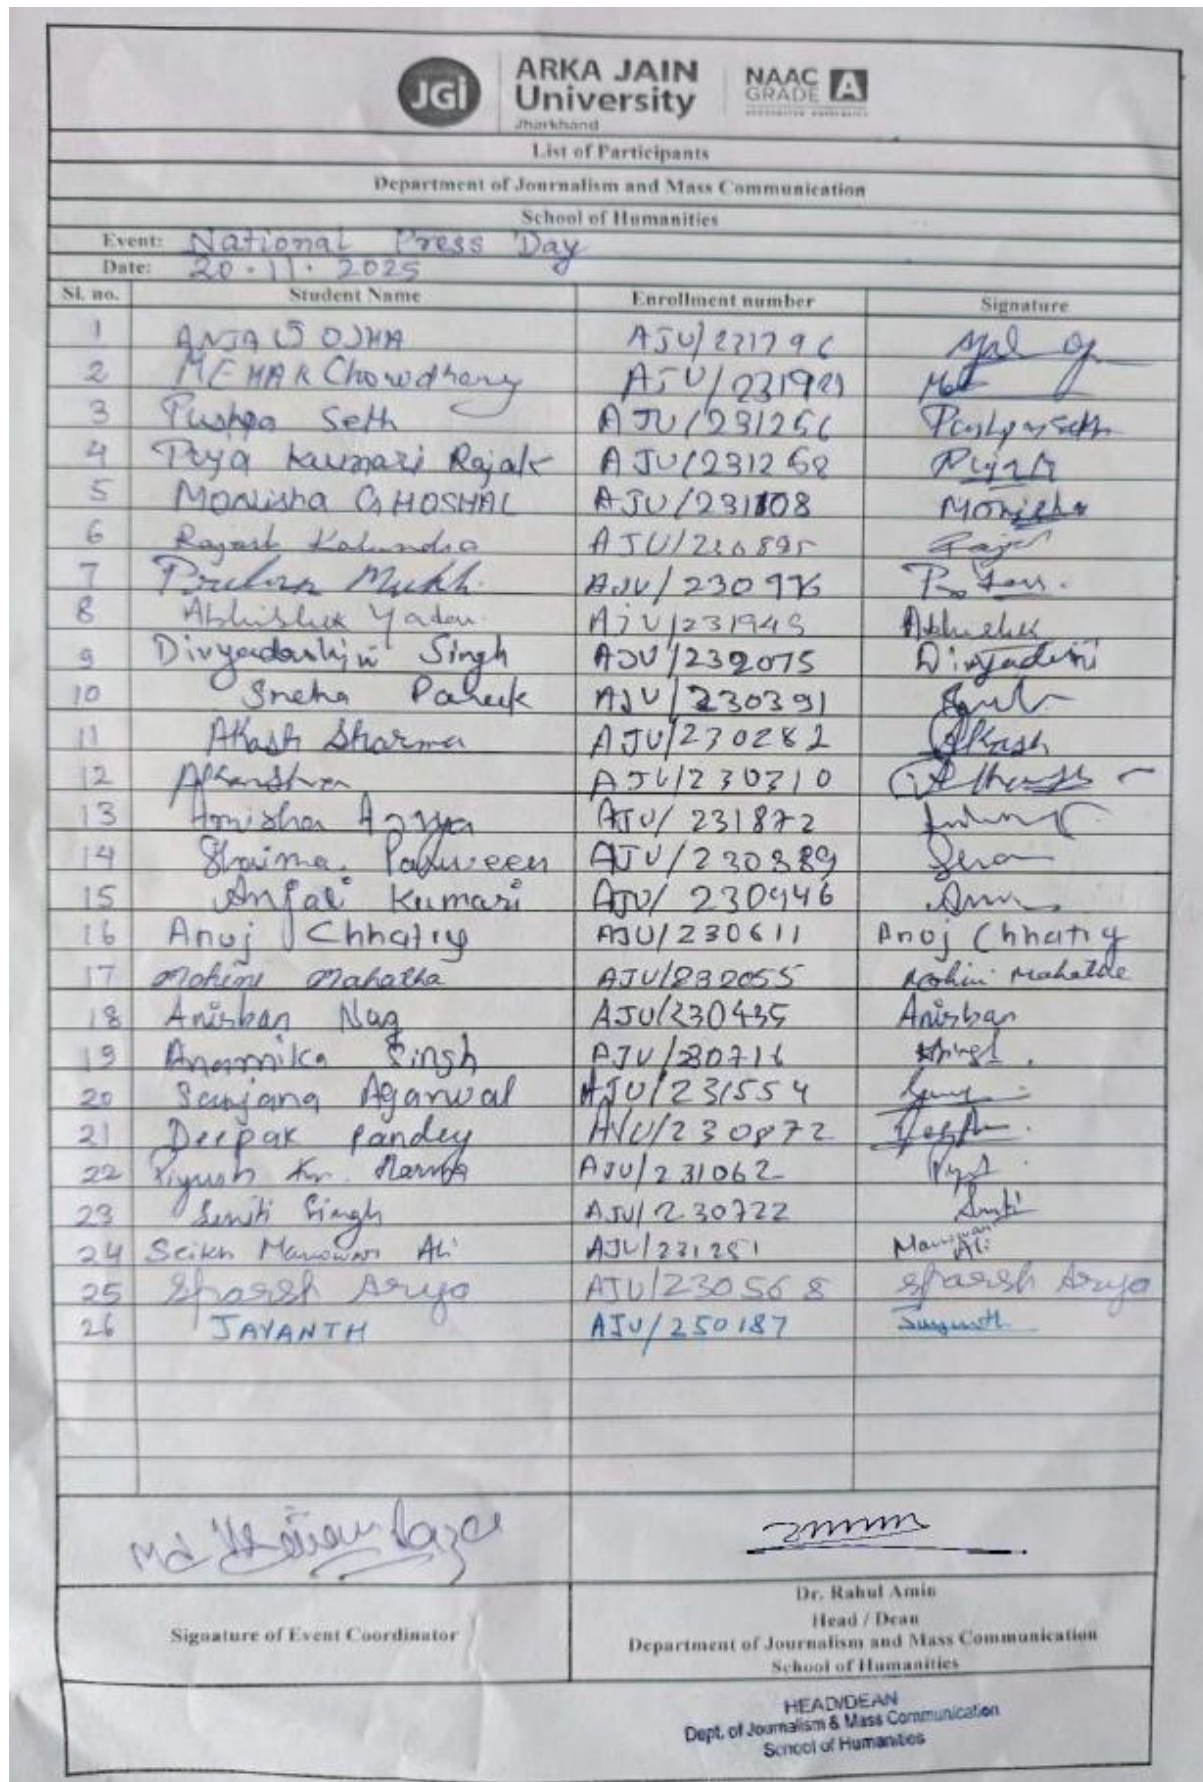 JGi ARKA JAIN University Jharkhand NAAC GRADE A
List of Participants
Department of Journalism and Mass Communication
School of Humanities
Event: National Press Day
Date: 20.11.2025
Sl. no. Student Name Enrollment number Signature
1 OJHA AJU/221796
2 MEHAK Chowdhary AJU/231929
3 Pushpa Seth AJU/231256 Pushpa Seth
4 Puja Kumari Rajak AJU/231268
5 Monisha GHOSHAL AJU/231108 Monisha
6 Rajash Kalundia AJU/230895
7 Mukh. AJU/230976
8 Abhishek Yadav AJU/231945 Abhishek
9 Divyadarshini Singh AJU/232075
10 Sneha Pareek AJU/230391
11 Akash Sharma AJU/230282 Akash
12 Akanshya AJU/230710
13 Amisha AJU/231872
14 Shaima Parween AJU/230389
15 Anjali Kumari AJU/230446
16 Anuj Chhatry AJU/230611 Anoj Chhatry
17 Mohini Mahatha AJU/232055 Mohini Mahatha
18 Anirban Nag AJU/230435 Anirban
19 Anamika Singh AJU/230716
20 Sanjana Agarwal AJU/231554
21 Deepak Pandey AJU/230872
22 Piyush Kr. AJU/231062
23 Smriti Singh AJU/230722
24 Seikh Manowar Ali AJU/231251 Manowar Ali
25 Sparsh Arya AJU/230568 Sparsh Arya
26 JAYANTH AJU/250187 Jayanth
Md
Dr. Rahul Amin
Signature of Event Coordinator Head / Dean
Department of Journalism and Mass Communication
School of Humanities
HEAD/DEAN
Dept. of Journalism & Mass Communication
School of Humanities